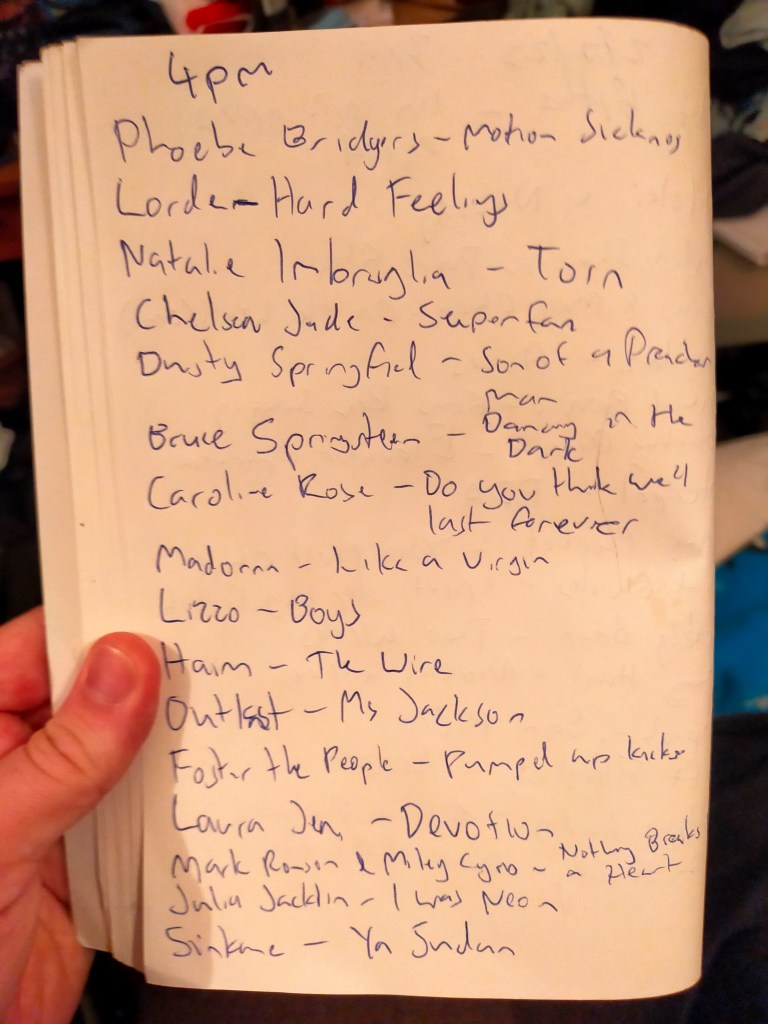 4pm
Phoebe Bridgers - Motion Sickness
Lorde - Hard Feelings
Natalie Imbruglia - Torn
Chelsea Jade - Superfan
Dusty Springfield - Son of a Preacher
man
Bruce Springsteen - Dancing in the
Dark
Caroline Rose - Do you think we'll
last forever
Madonna - Like a Virgin
Lizzo - Boys
Haim - The Wire
Outkast - Ms Jackson
Foster the People - Pumped up kicks
Laura Jean - Devotion
Mark Ronson & Miley Cyrus - Nothing Breaks
a Heart
Julia Jacklin - I was Neon
Sinkane - Ya Sudan